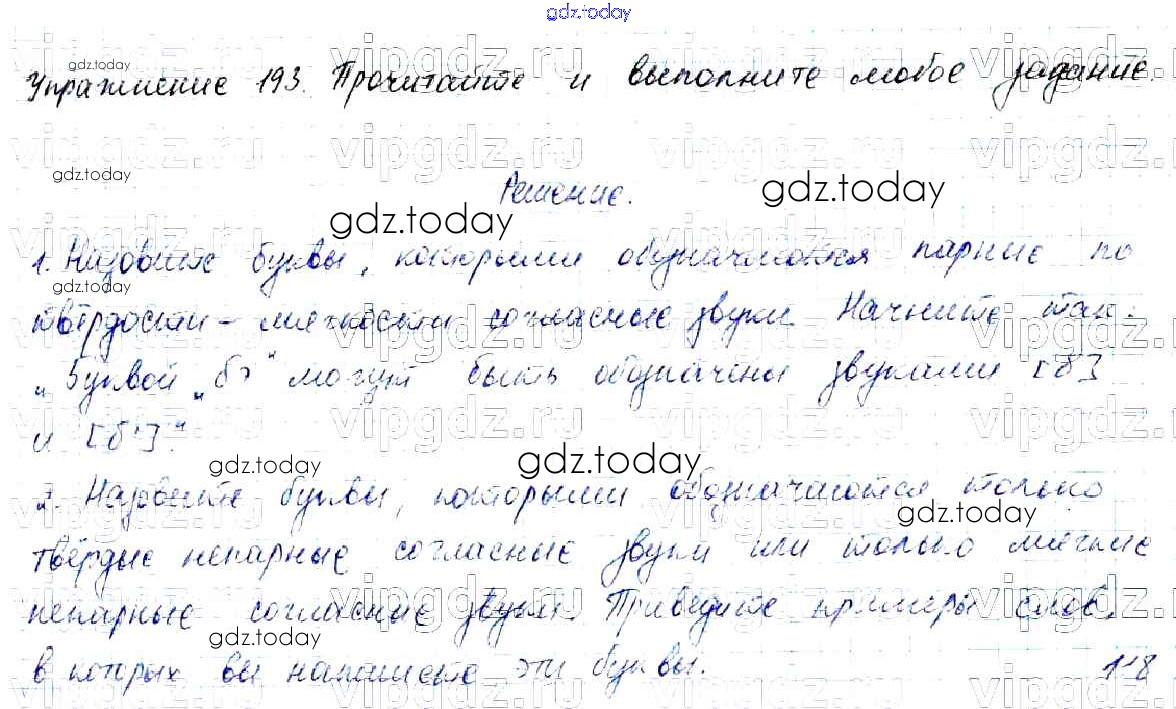 gdz.today
Упражнение 193. Прочитайте и выполните любое задание.
Решение.
1. Назовите буквы, которыми обозначаются парные по
твёрдости - мягкости согласные звуки. Начните так:
„Буквой „б" могут быть обозначены звуками [б]
и [б']".
2. Назовите буквы, которыми обозначаются только
твёрдые непарные согласные звуки или только мягкие
непарные согласные звуки. Приведите примеры слов,
в котрых вы напишете эти буквы.
118
vipgdz.ru
gdz.today